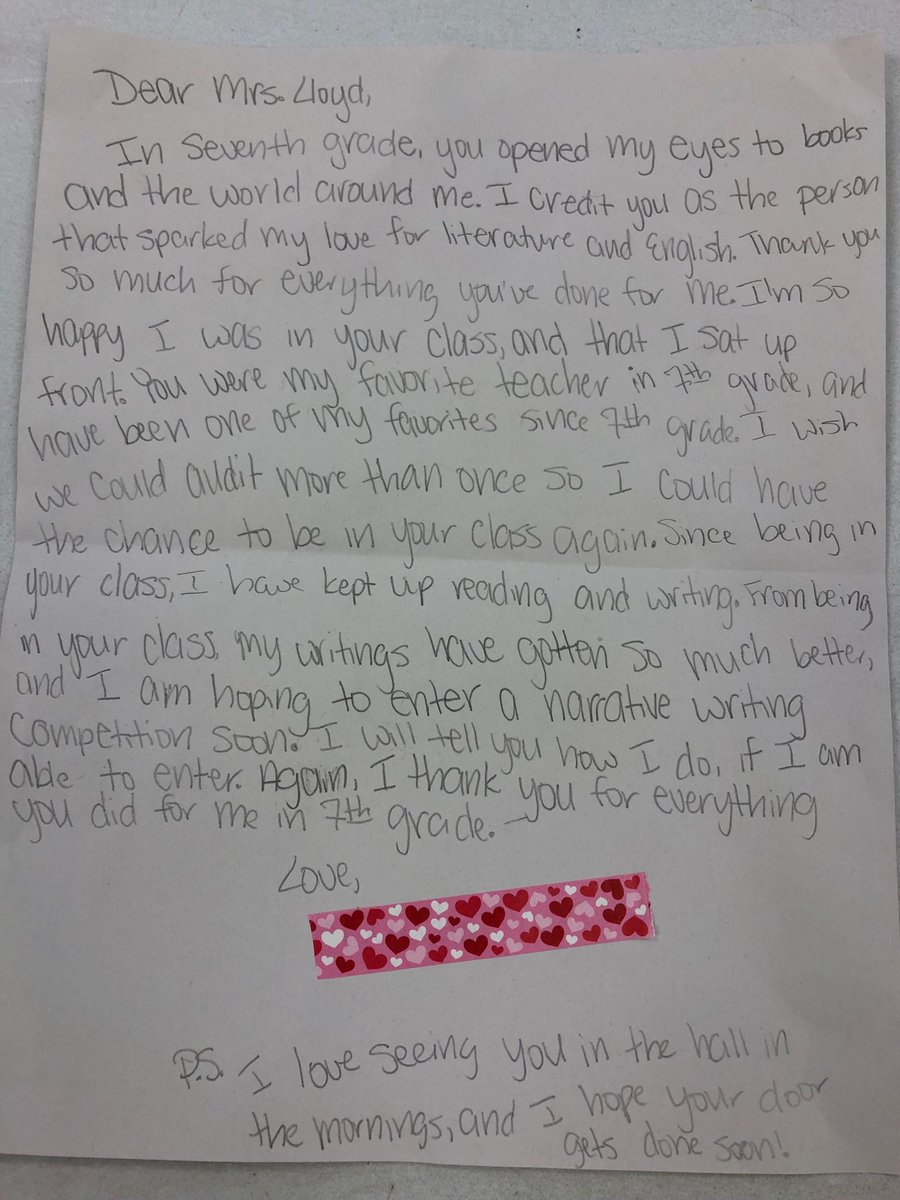 Dear Mrs. Lloyd,
In Seventh grade, you opened my eyes to books
and the world around me. I credit you as the person
that sparked my love for literature and English. Thank you
so much for everything you've done for me. I'm so
happy I was in your class, and that I sat up
front. You were my favorite teacher in 7th grade, and
have been one of my favorites since 7th grade. I wish
we could audit more than once so I could have
the chance to be in your class again. Since being in
your class, I have kept up reading and writing. From being
in your class, my writings have gotten so much better,
and I am hoping to enter a narrative writing
competition soon. I will tell you how I do, if I am
able to enter. Again, I thank you for everything
you did for me in 7th grade. —
Love,
P.S. I love seeing you in the hall in
the mornings, and I hope your door
gets done soon!